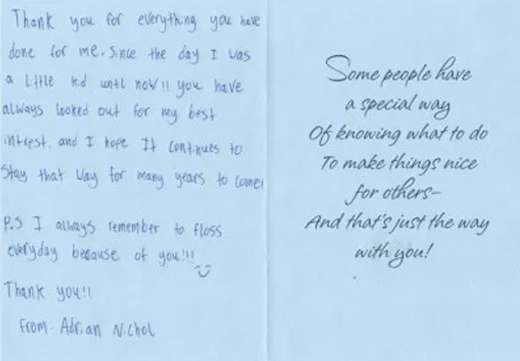 Thank you for everything you have
done for me. Since the day I was
a little kid until now!! you have
always looked out for my best
intrest, and I hope It continues to
Stay that way for many years to come!
P.S I always remember to floss
everyday because of you!!!
Thank you!!
From: Adrian Nichol
Some people have
a special way
Of knowing what to do
To make things nice
for others-
And that's just the way
with you!